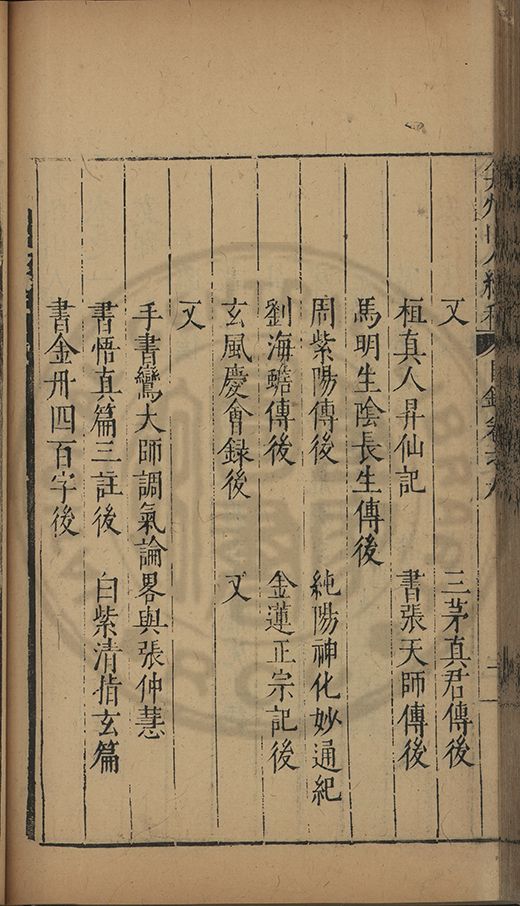 又　三茅真君傳後
桓真人昇仙記　書張天師傳後
馬明生陰長生傳後
周紫陽傳後　純陽神化妙通紀
劉海蟾傳後　金蓮正宗記後
玄風慶會録後　又
又
手書鸞大師調氣論畧與張仲慧
書悟真篇三註後　白紫清指玄篇
書金丹四百字後